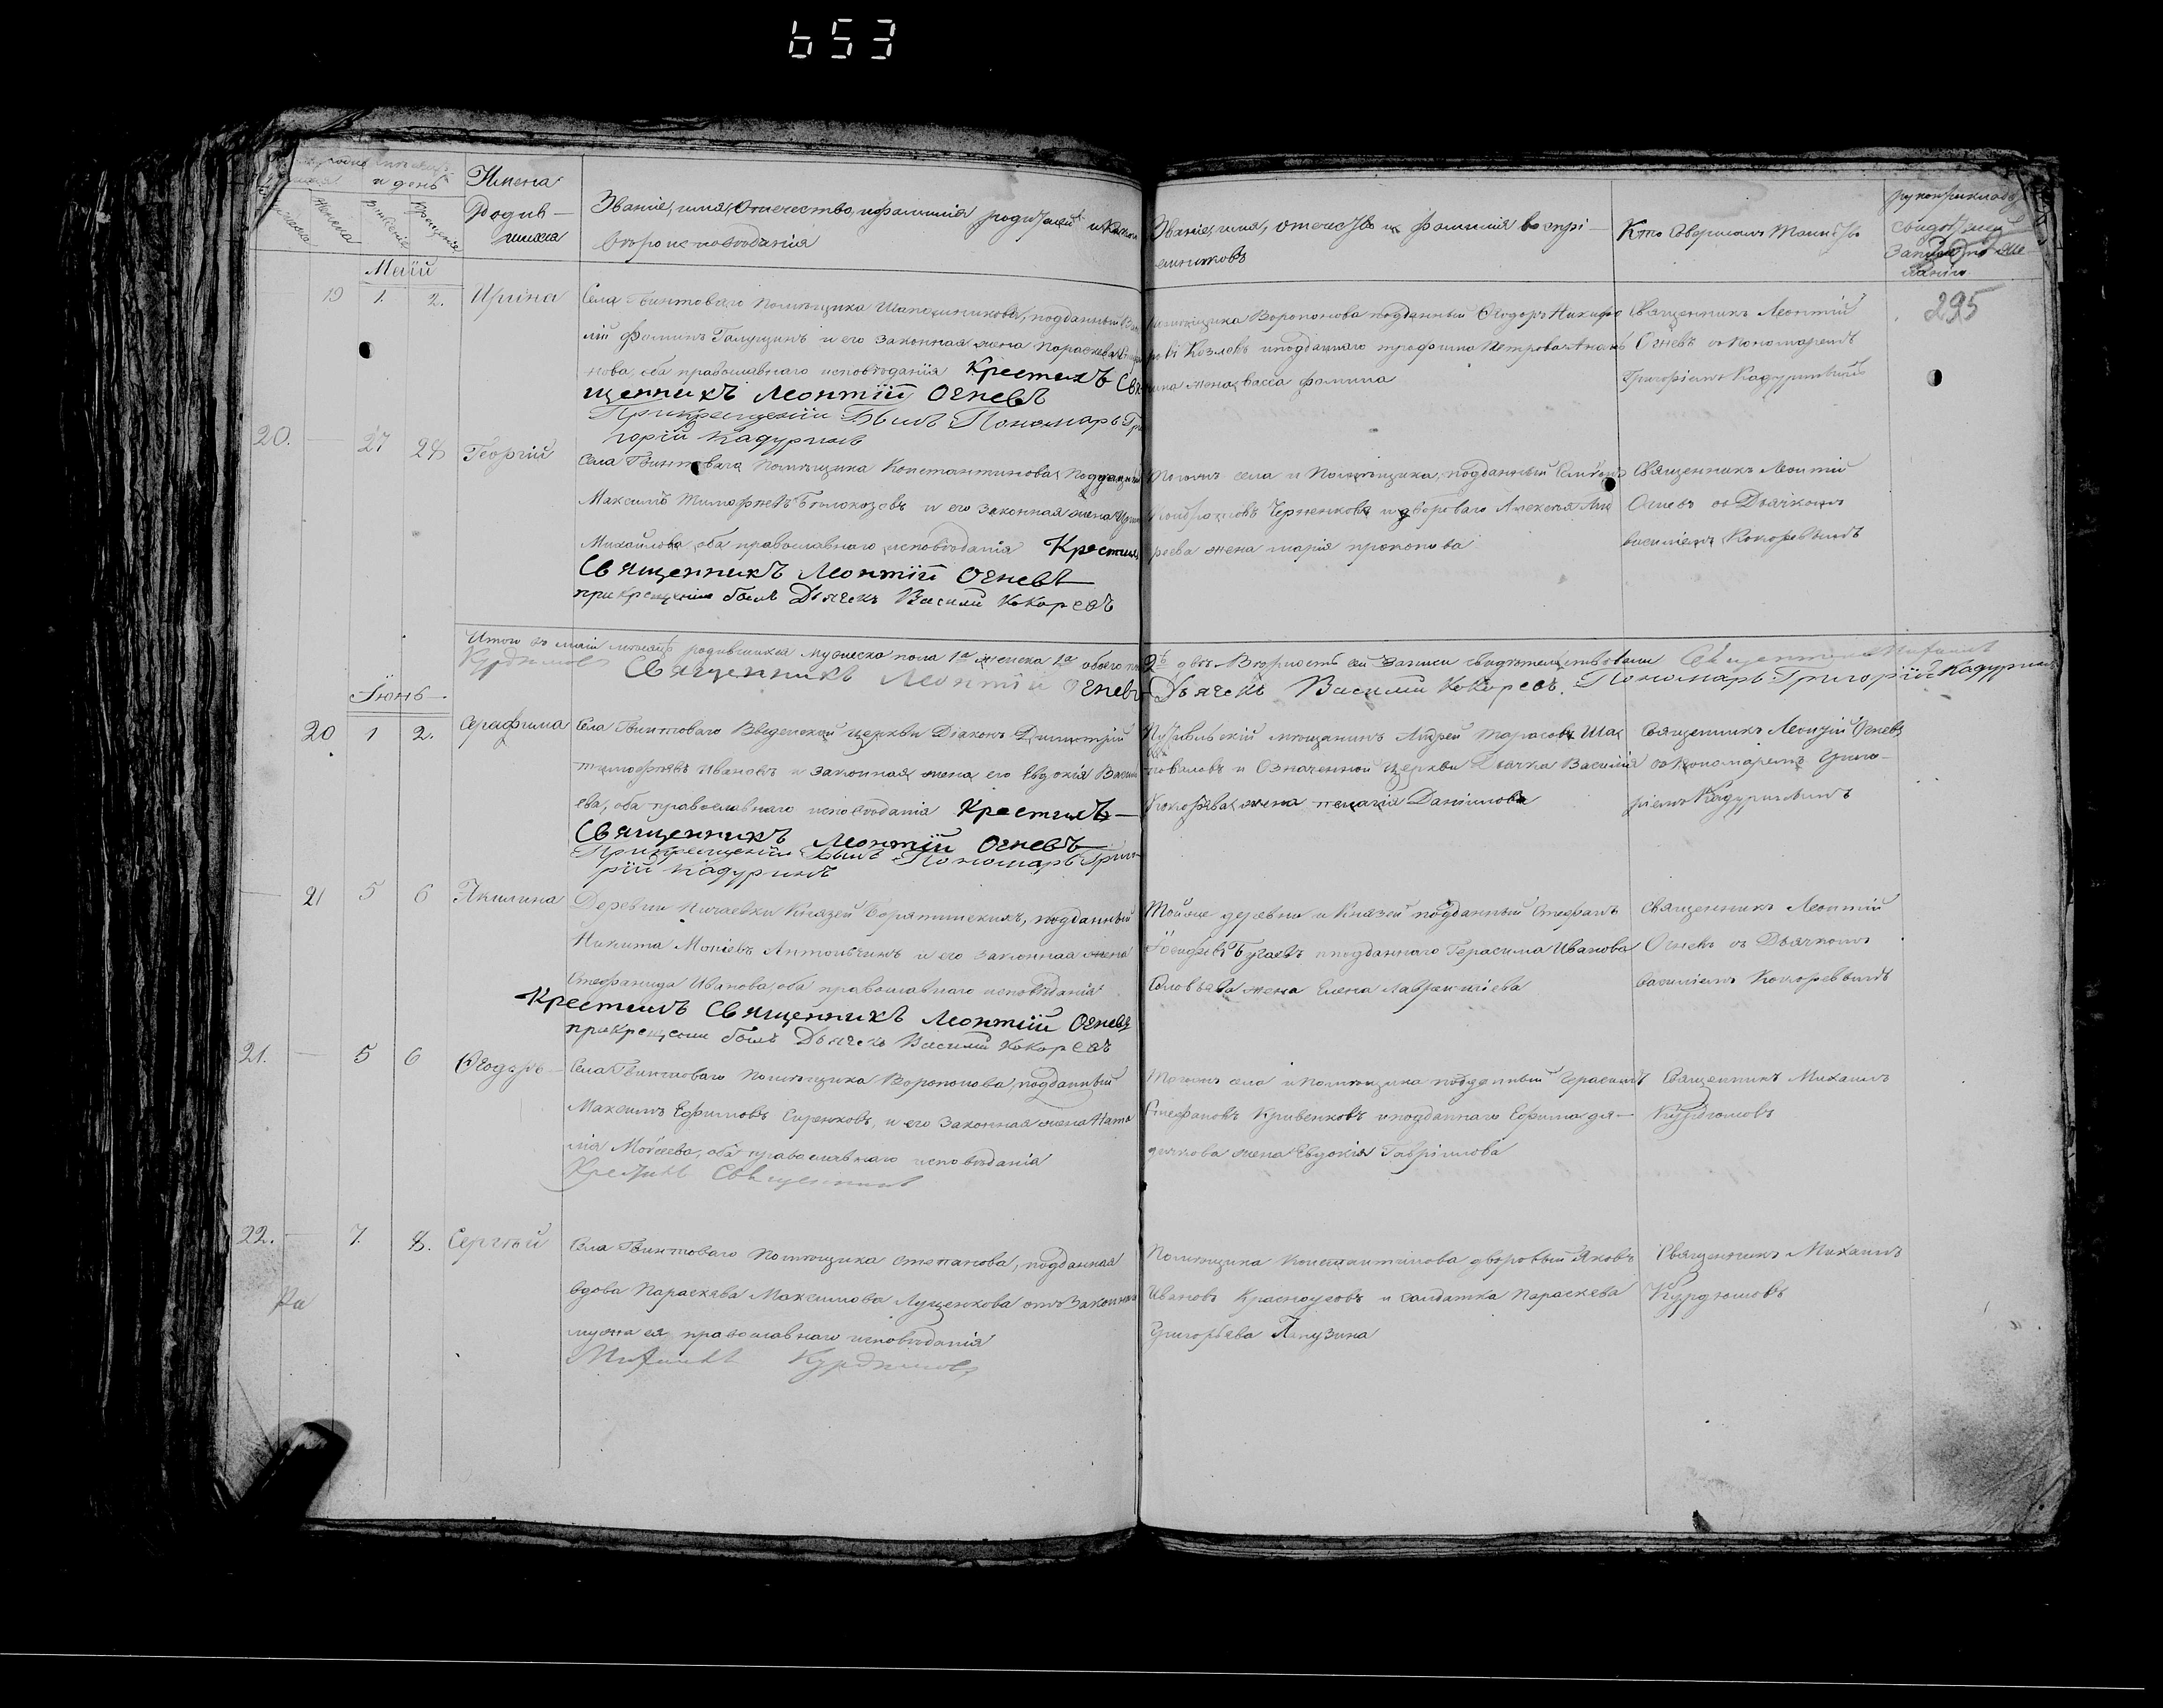 653
и день
Имена
Родив-
шихся
Званіе, имя, Отечество, и фамилія родителей и какого
вѣроисповѣданія
Званіе, имя, отечество и фамилія воспрі-
емниковъ
Кто совершалъ таинство
рукоприкладство
свидѣтелей
записи по же-
ланію
295
Маій
19 1. 2. Ирина
Села Гвинтоваго помѣщика Шапошникова, подданный
лій Фоминъ Галущинъ и его законная жена Параскева
нова, оба православнаго исповѣданія Крестилъ Свя
щенникъ Леонтій Огневъ
При крещеніи Былъ Пономарь Гри
горій Кадуринъ
помѣщика Воропонова подданный Ѳеодоръ Никифо
ровъ Козловъ и подданнаго Трофима Петрова
жена Васса Фомина
Священникъ Леонтій
Огневъ съ Пономаремъ
Григоріемъ Кадуринымъ
20. 27 28 Георгій
Села Гвинтоваго помѣщика Константинова, подданный
Максимъ Тимофѣевъ Бѣлокозовъ и его законная жена Ирина
Михайлова, оба православнаго исповѣданія Крестилъ
Священникъ Леонтій Огневъ
при крещеніи былъ Дьячекъ Василій Кокоревъ
Тогожъ села и Помѣщика, подданный
Черненковъ и двороваго Алексѣя Анд
реева жена Марія Прокопова
Священникъ Леонтій
Огневъ съ Дьячкомъ
Василіемъ Кокоревымъ
Итого въ маіи мѣсяцѣ родившихся мужеска пола 1а женска 1а обоего пола
2е двое. Вѣрность сей записи свидѣтельствовали Священникъ Михаилъ
Курдюмовъ Священникъ Леонтій Огневъ
Дьячекъ Василій Кокоревъ. Пономарь Григорій Кадуринъ
Іюнь
20 1 2. Серафима
Села Гвинтоваго Введенской церкви Діаконъ Димитрій
Тимофѣевъ Ивановъ и законная жена его Евдокія Василь
ева, оба православнаго исповѣданія Крестилъ
Священникъ Леонтій Огневъ
При крещеніи Былъ Пономарь Григо
рій Кадуринъ
Путивльскій мѣщанинъ Андрей Тарасовъ Ша
поваловъ и Означенной церкви Дьячка Василія
Кокорева жена Пелагія Даніилова
Священникъ Леонтій Огневъ
съ пономаремъ Григо-
ріемъ Кадуринымъ
21 5 6 Акилина
Деревни Ничаевки Князей Борятинскихъ, подданный
Никита Антоньчинъ и его законная жена
Стефанида Иванова, оба православнаго исповѣданія
Крестилъ Священникъ Леонтій Огневъ
при крещеніи былъ Дьячекъ Василій Кокоревъ
Тойже деревни и Князей подданный Стефанъ
Іосифовъ Бугаевъ и подданнаго Герасима Иванова
Соловьева жена Елена Лаврентіева
Священникъ Леонтій
Огневъ съ Дьячкомъ
Василіемъ Кокоревымъ
21. 5 6 Ѳеодоръ
Села Гвинтоваго помѣщика Воропонова, подданный
Максимъ Ефимовъ Сиренковъ, и его законная жена Ната
лія Моѵсеева, оба православнаго исповѣданія
Крестилъ Священникъ
Тогожъ села и помѣщика подданный Герасимъ
Стефановъ Кривенковъ и подданнаго Ефима дя-
дичкова жена Евдокія Гавріилова
Священникъ Михаилъ
Курдюмовъ
22. 7. 8. Сергій
Села Гвинтоваго помѣщика Степанова, подданная
вдова Параскева Максимова Луценкова отъ законнаго
мужа ея православнаго исповѣданія
Михаилъ Курдюмовъ
Помѣщика Константинова дворовый Яковъ
Ивановъ Красноусовъ и солдатка Параскева
Григорьева
Священникъ Михаилъ
Курдюмовъ